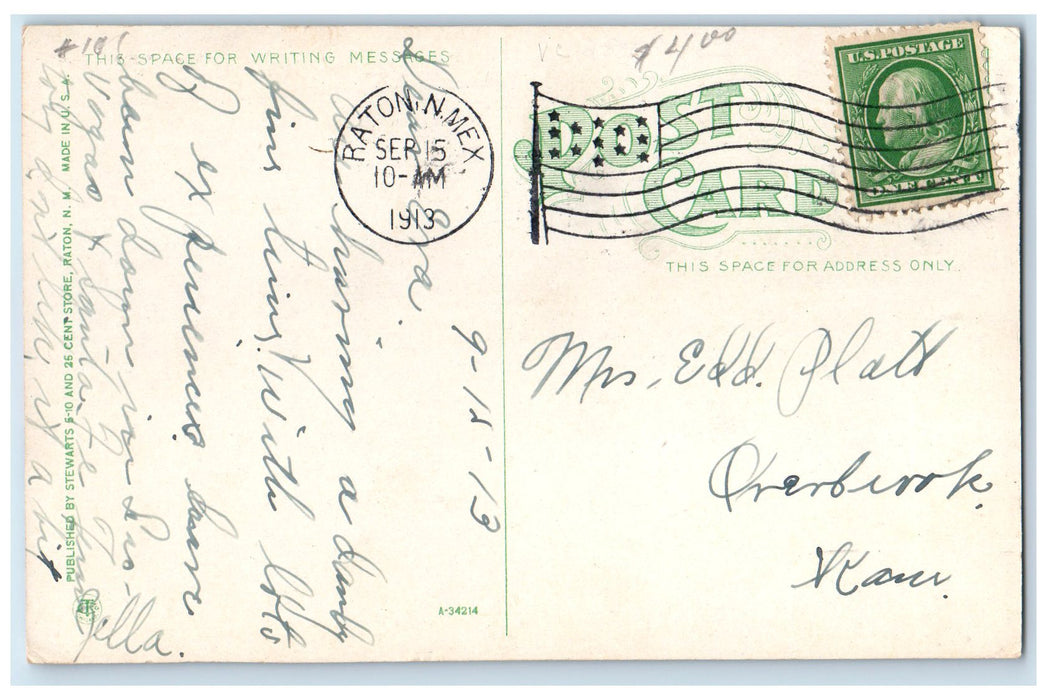 #101
THIS SPACE FOR WRITING MESSAGES
$4.00
POST CARD
THIS SPACE FOR ADDRESS ONLY.
U.S. POSTAGE
ONE CENT
RATON, N. MEX
SEP 15
10-AM
1913
9-15-13
having a dandy
fine time. With lots
of experiences have
been down in Las
Vegas & Santa Fe
a big
Ella.
Mrs. Edd. Platt
Overbrook
Kans.
PUBLISHED BY STEWARTS 5-10 AND 25 CENT STORE, RATON, N. M. MADE IN U. S. A.
A-34214